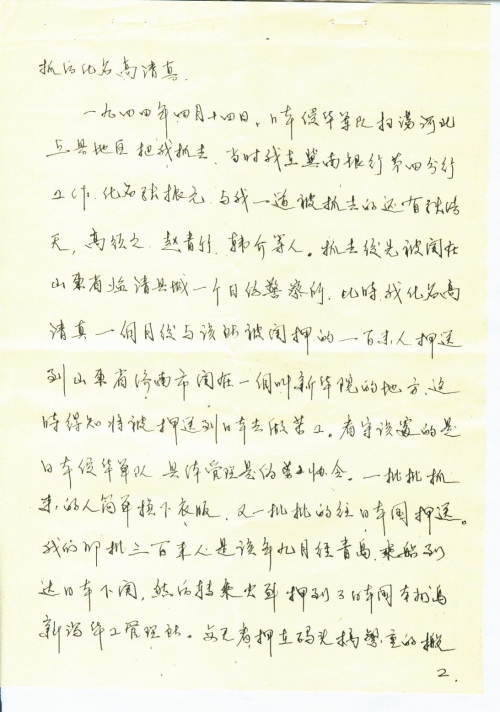 抓后化名高清真.
一九四四年四月十四日,日本侵华军队扫荡河北
丘县地区把我抓去,当时我在冀南银行第四分行
工作.化名张振元.与我一道被抓去的还有张清
天,高欣之.赵青轩.韩介等人.抓去后先被关在
山东省临清县城一个日伪警察所.此时我化名高
清真一個月后与该所被关押的一百来人押送
到山东省济南市关在一個叫新华院的地方.这
时得知将被押送到日本去做劳工.看守该处的是
日本侵华军队具体管理是伪劳工协会.一批批抓
来的人简单换下衣服,又一批批的往日本国押送。
我们那批三百来人是该年九月经青岛乘船到
达日本下关,然后转乘火车押到了日本国本州岛
新潟华工管理所。每天看押在码头搞繁重的搬
2.